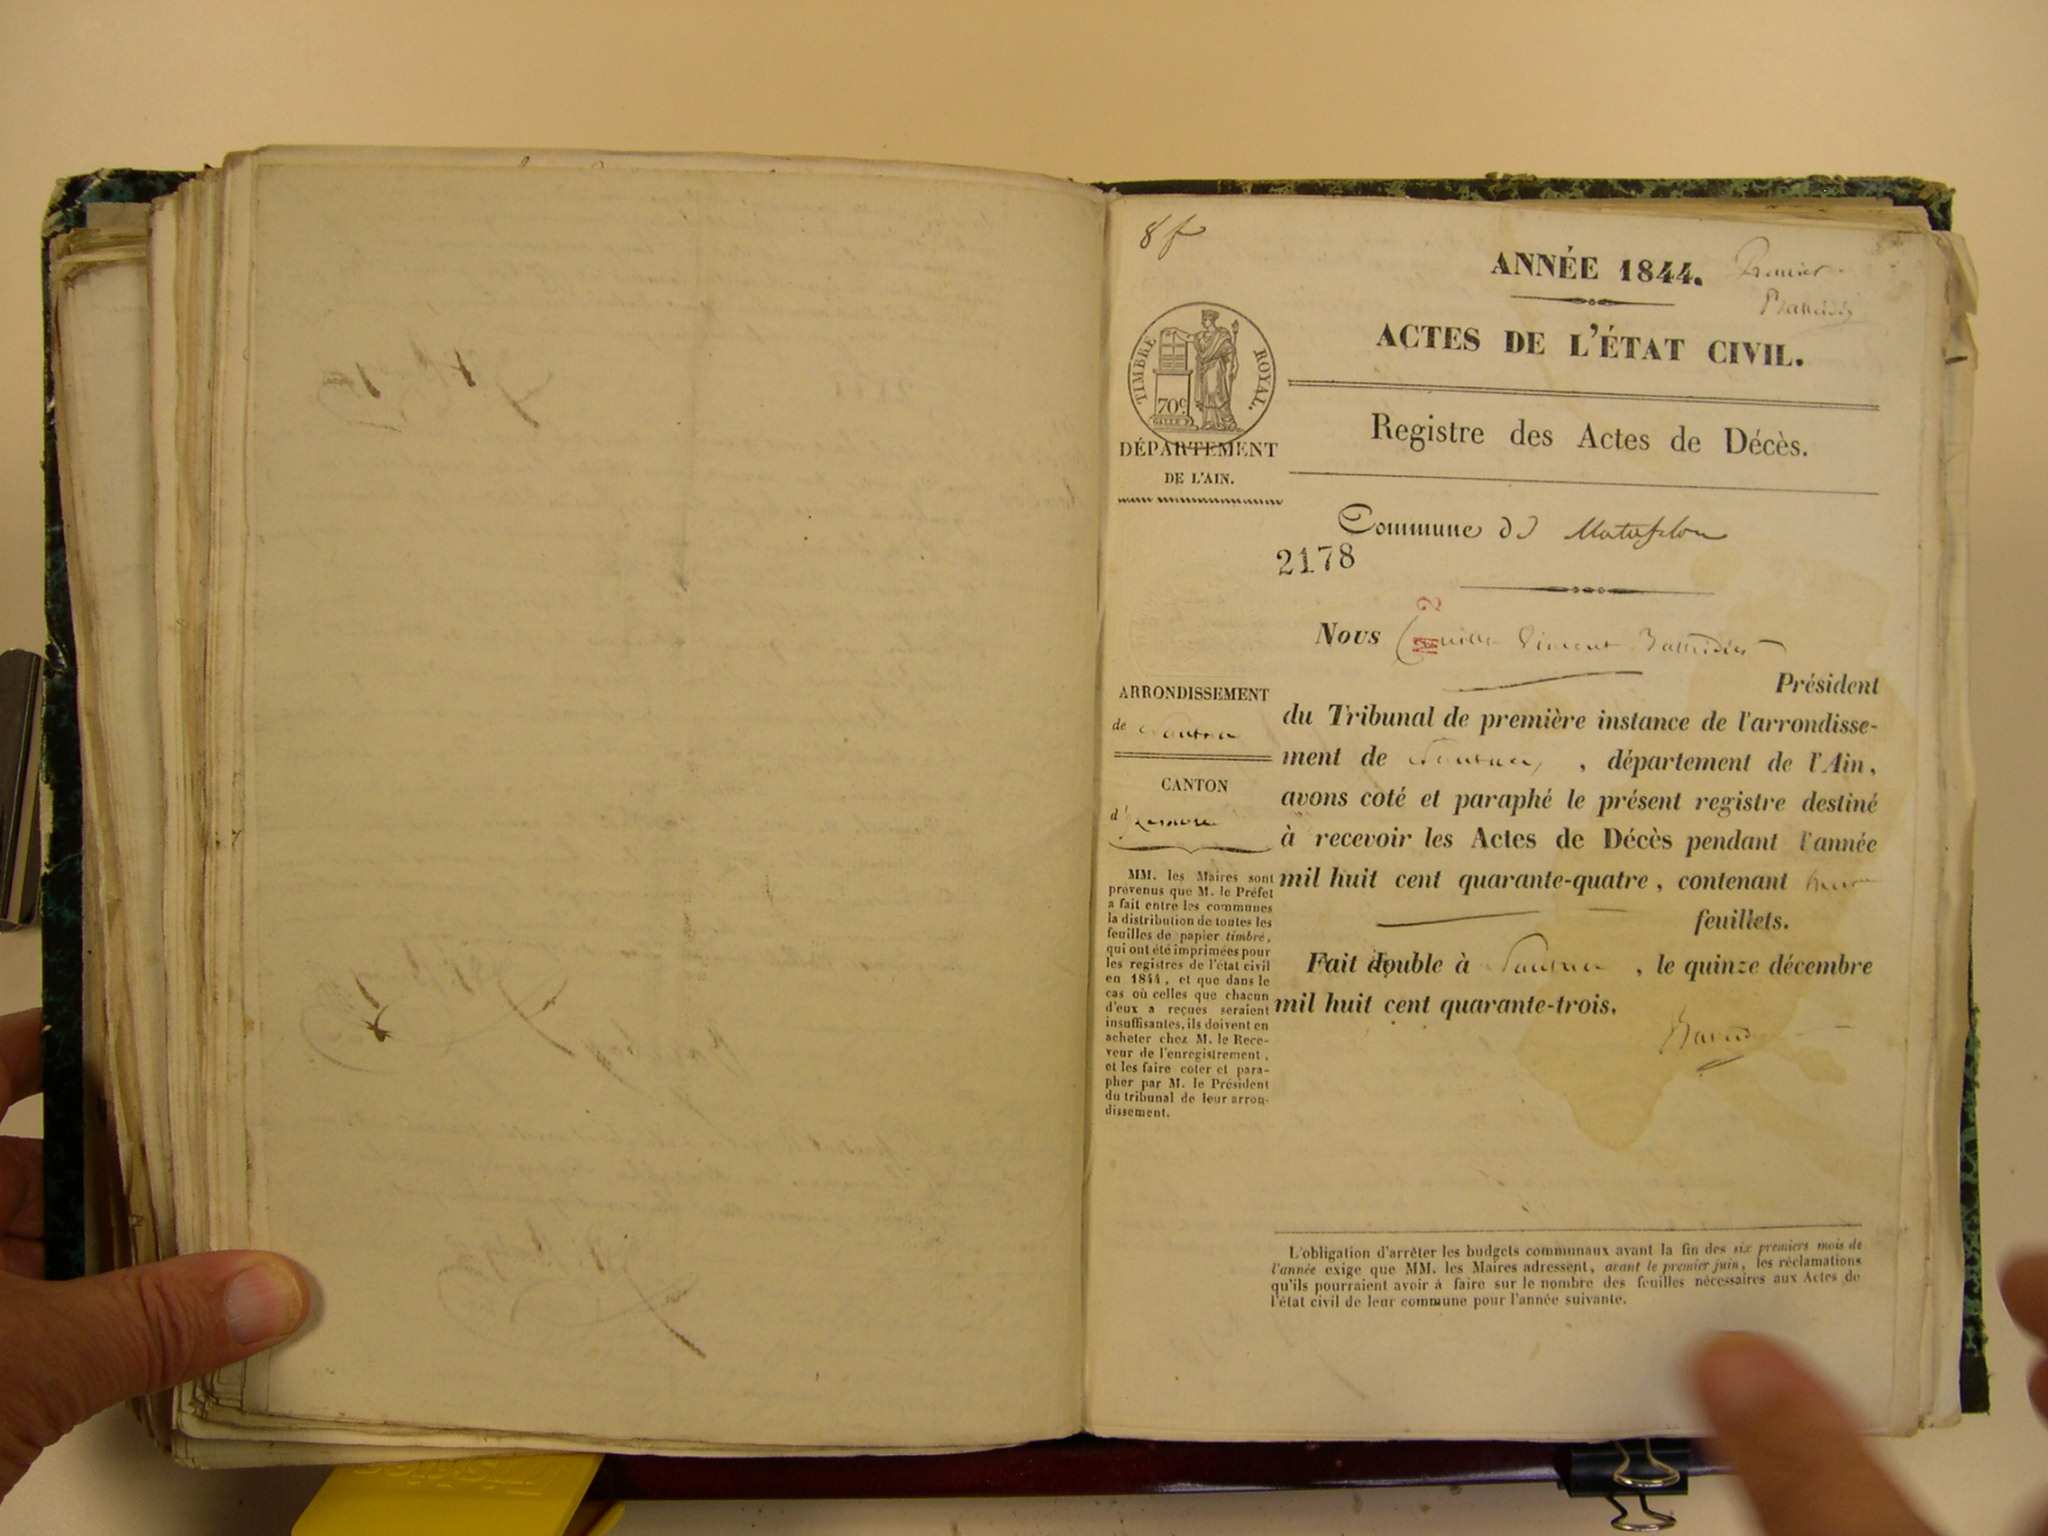 8 f
ANNÉE 1844. Premier
ACTES DE L'ÉTAT CIVIL.
TIMBRE ROYAL.
70c.
DÉPARTEMENT
DE L'AIN.
Registre des Actes de Décès.
Commune de Matafelon
2178
Nous Camille Vincent
Président
du Tribunal de première instance de l'arrondisse-
ment de Nantua, , département de l'Ain,
avons coté et paraphé le présent registre destiné
à recevoir les Actes de Décès pendant l'année
mil huit cent quarante-quatre, contenant
feuillets.
Fait double à Nantua , le quinze décembre
mil huit cent quarante-trois.
ARRONDISSEMENT
de Nantua
CANTON
d'Izernore
MM. les Maires sont
prévenus que M. le Préfet
a fait entre les communes
la distribution de toutes les
feuilles de papier timbré,
qui ont été imprimées pour
les registres de l'état civil
en 1844, et que dans le
cas où celles que chacun
d'eux a reçues seraient
insuffisantes, ils doivent en
acheter chez M. le Rece-
veur de l'enregistrement,
et les faire coter et para-
pher par M. le Président
du tribunal de leur arron-
dissement.
L'obligation d'arrêter les budgets communaux avant la fin des six premiers mois de
l'année exige que MM. les Maires adressent, avant le premier juin, les réclamations
qu'ils pourraient avoir à faire sur le nombre des feuilles nécessaires aux Actes de
l'état civil de leur commune pour l'année suivante.